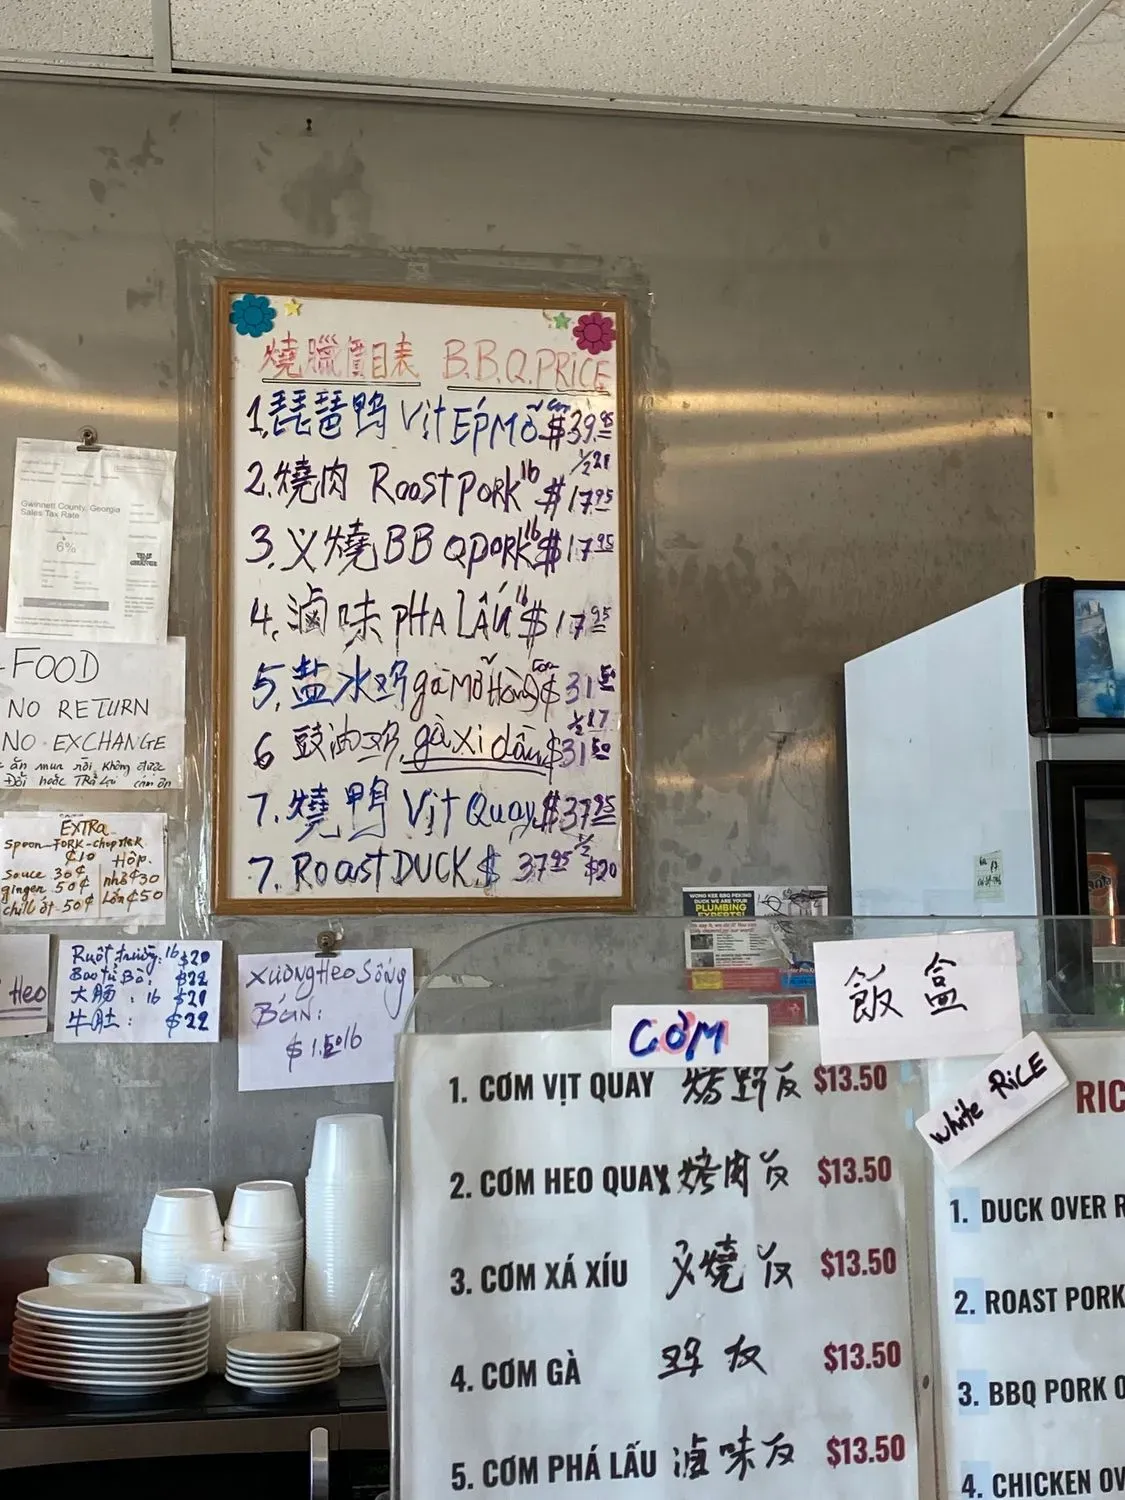 燒臘價目表 B.B.Q. PRICE
1. 琵琶鴨 Vịt ÉP MỠ con $39.95
1/2 21
2. 燒肉 Roast PORK lb $17.95
3. 义燒 BBQ PORK lb $17.95
4. 滷味 PHÁ LẤU lb $17.95
5. 盐水鸡 gà Mỡ Hành con $31.50
1/2 17
6 豉油鸡 gà xì dầu $31.50
7. 燒鴨 Vịt Quay $37.95
7. Roast DUCK $ 37.95 1/2 $20
Gwinnett County, Georgia
Sales Tax Rate
6%
FOOD
NO RETURN
NO EXCHANGE
ăn mua rồi không được
Đổi hoặc TRả Lại cám ơn
EXTRA
Spoon-FORK-chopstek
¢10
Sauce 30¢
ginger 50¢
chill ớt 50¢
Hộp
nhỏ ¢30
Lớn ¢50
Heo
Ruột trường: lb $20
Bao tử Bò: $22
大肠 : lb $20
牛肚: $22
Xương Heo Sống
BÁN:
$1.50 lb
WONG KEE BBQ PEKING
DUCK WE ARE YOUR
PLUMBING
EXPERTS!
CƠM
飯盒
White RiCE
1. CƠM VỊT QUAY $13.50
2. CƠM HEO QUAY 烤肉反 $13.50
3. CƠM XÁ XÍU 义燒反 $13.50
4. CƠM GÀ 鸡反 $13.50
5. CƠM PHÁ LẤU 滷味反 $13.50
RIC
1. DUCK OVER R
2. ROAST PORK
3. BBQ PORK O
4. CHICKEN OV